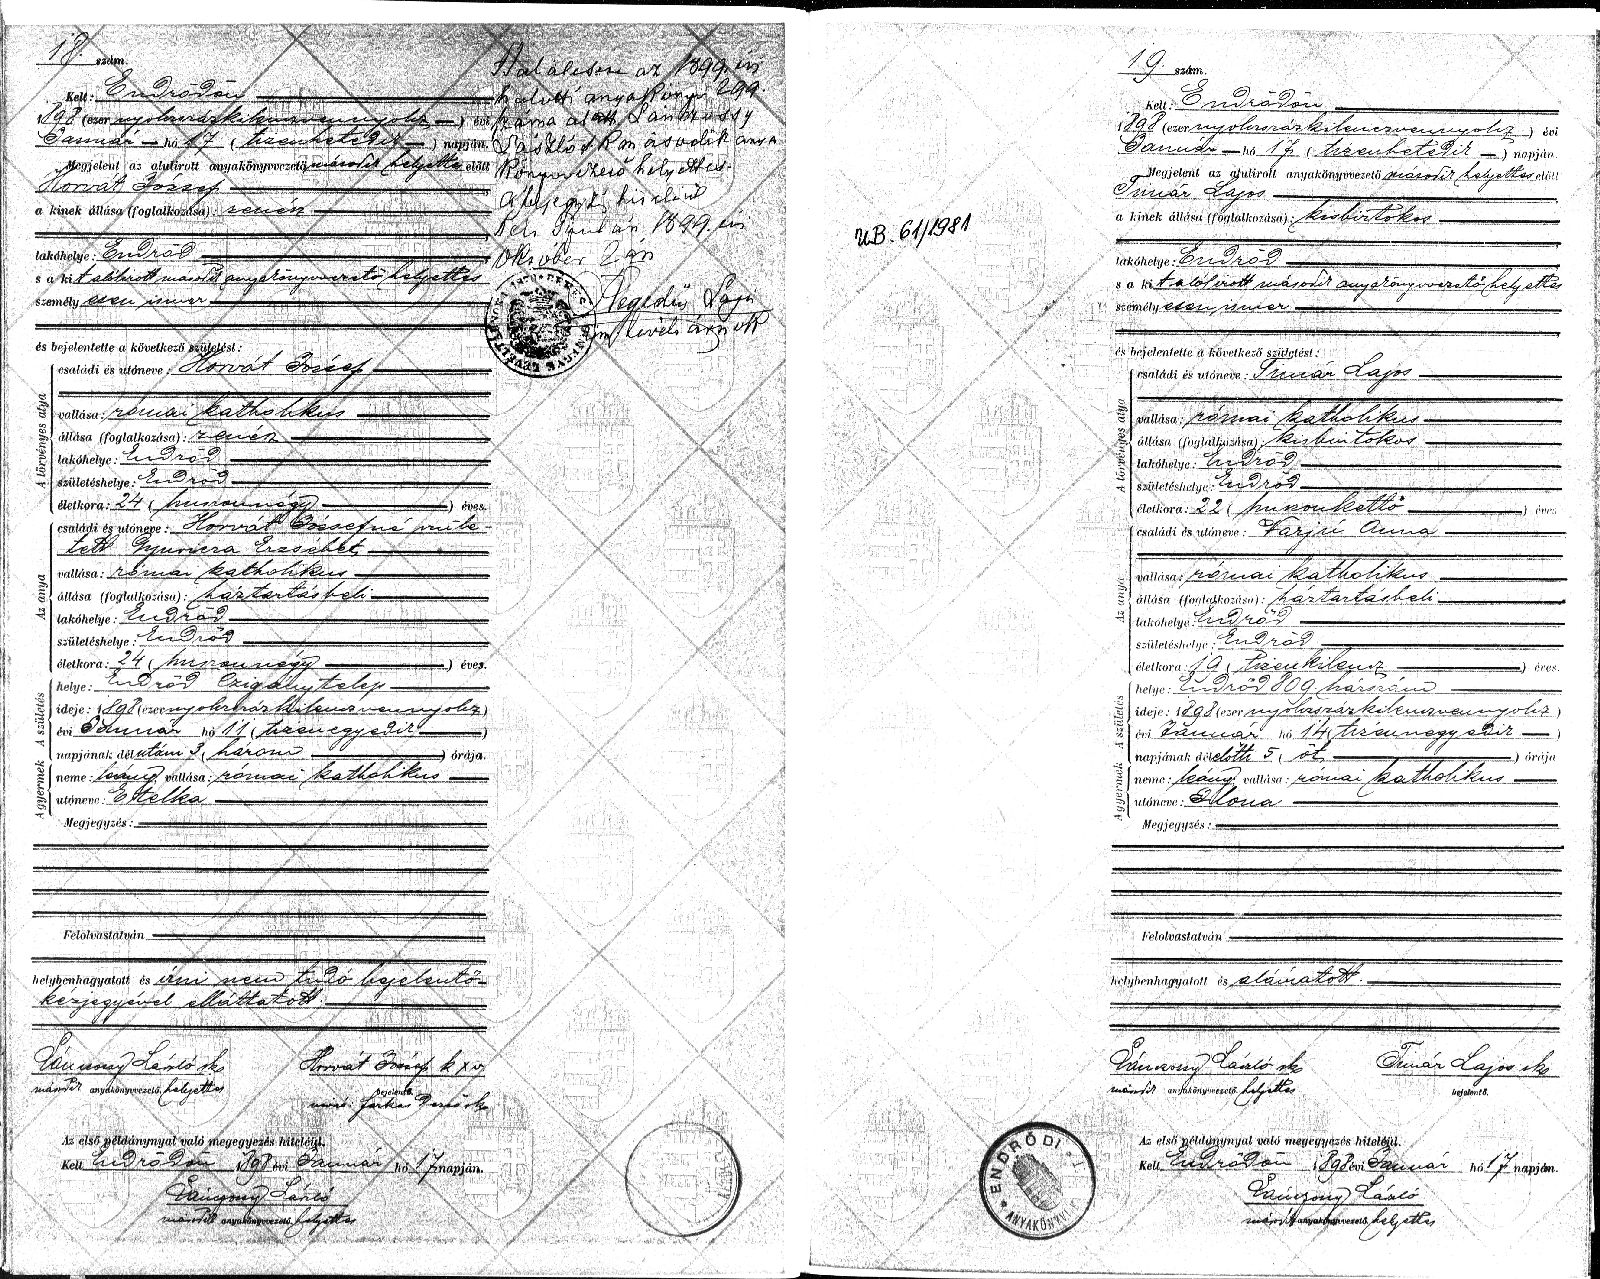 18. szám.
Kelt: Endrődön
1898 (ezer nyolcszázkilenczvennyolcz) évi
Január hó 17 (tizenhetedik) napján.
Megjelent az alulirott anyakönyvvezető második helyettes előtt
Horvát József
a kinek állása (foglalkozása): zenész
lakóhelye: Endrőd
s a kit alulirott második anyakönyvvezető helyettes
személyesen ismer
és bejelentette a következő születést:
A törvényes atya
családi és utóneve: Horvát József
vallása: római katholikus
állása (foglalkozása): zenész
lakóhelye: Endrőd
születéshelye: Endrőd
életkora: 24 (huszonnégy) éves.
Az anya
családi és utóneve: Horvát Józsefné szüle-
tett Gyuricza Erzsébet
vallása: római katholikus
állása (foglalkozása): háztartásbeli
lakóhelye: Endrőd
születéshelye: Endrőd
életkora: 24 (huszonnégy) éves.
A születés
helye: Endrőd Czigánytelep
ideje: 1898 (ezer nyolcszázkilenczvennyolcz)
évi Január hó 11 (tizenegyedik)
napjának délutáni 3 (három) órája.
A gyermek
neme: leány, vallása: római katholikus
utóneve: Etelka
Megjegyzés:
Felolvastatván
helybenhagyatott és irni nem tudó bejelentő
kézjegyével elláttatott.
László sk
Horvát József k x v
második anyakönyvvezető helyettes
bejelentő.
Farkas
Az első példánynyal való megegyezés hiteléül.
Kelt Endrődön 1898 évi Január hó 17 napján.
László
második anyakönyvvezető helyettes
az 1899. év
halotti anyakönyvi 299
száma alatt
László s. k. második anya
könyvvezető helyettes
bejegyzés hiteléül
1899. év
október 2 án
Hegedűs Lajos
19. szám.
Kelt: Endrődön
1898 (ezer nyolcszázkilenczvennyolcz) évi
Január hó 17 (tizenhetedik) napján.
Megjelent az alulirott anyakönyvvezető második helyettes előtt
Tímár Lajos
a kinek állása (foglalkozása): kisbirtokos
lakóhelye: Endrőd
s a kit alólirott második anyakönyvvezető helyettes
személyesen ismer
és bejelentette a következő születést:
A törvényes atya
családi és utóneve: Tímár Lajos
vallása: római katholikus
állása (foglalkozása): kisbirtokos
lakóhelye: Endrőd
születéshelye: Endrőd
életkora: 22 (huszonkettő) éves
Az anya
családi és utóneve: Varjú Anna
vallása: római katholikus
állása (foglalkozása): háztartásbeli
lakóhelye: Endrőd
születéshelye: Endrőd
életkora: 19 (tizenkilencz) éves.
A születés
helye: Endrőd 809 házszám
ideje: 1898 (ezer nyolcszázkilenczvennyolcz)
évi Január hó 14 (tizennegyedik)
napjának délelőtti 5 (öt) órája
A gyermek
neme: leány, vallása: római katholikus
utóneve: Ilona
Megjegyzés:
Felolvastatván
helybenhagyatott és aláiratott.
László sk
Tímár Lajos sk
második anyakönyvvezető helyettes
bejelentő.
Az első példánynyal való megegyezés hiteléül.
Kelt Endrődön 1898 évi Január hó 17 napján.
László
második anyakönyvvezető helyettes
UB. 61/1981
ENDRŐDI